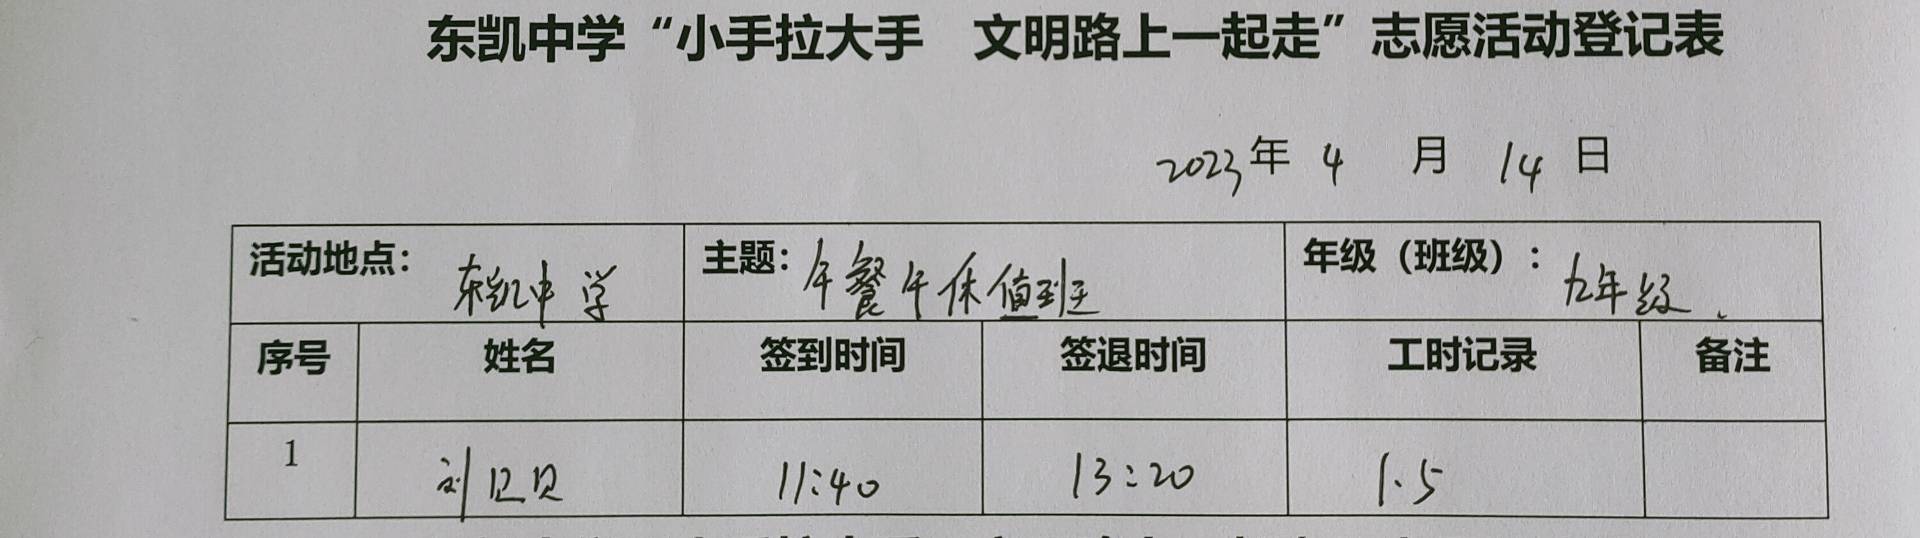 东凯中学“小手拉大手 文明路上一起走”志愿活动登记表
2023年 4 月 14 日
活动地点：东凯中学 主题：午餐午休值班 年级（班级）：九年级
序号 姓名 签到时间 签退时间 工时记录 备注
1 刘贝贝 11:40 13:20 1.5